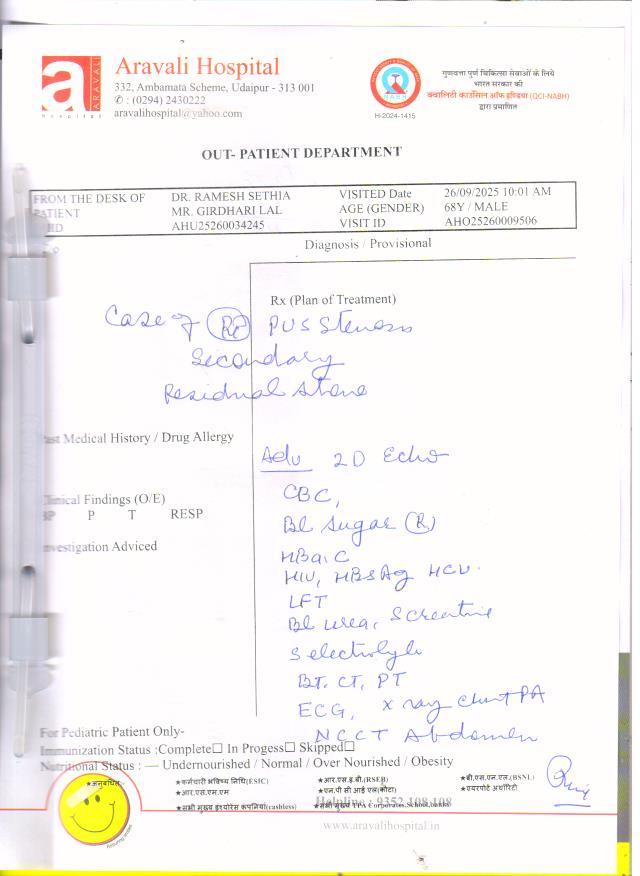 a
ARAVALI
hospital
Aravali Hospital
332, Ambamata Scheme, Udaipur - 313 001
✆ : (0294) 2430222
aravalihospital@yahoo.com
NABH
H-2024-1415
गुणवत्ता पूर्ण चिकित्सा सेवाओं के लिये
भारत सरकार की
क्वालिटी काउंसिल ऑफ इण्डिया (QCI-NABH)
द्वारा प्रमाणित
OUT- PATIENT DEPARTMENT
FROM THE DESK OF DR. RAMESH SETHIA VISITED Date 26/09/2025 10:01 AM
PATIENT MR. GIRDHARI LAL AGE (GENDER) 68Y / MALE
ID AHU25260034245 VISIT ID AHO25260009506
Diagnosis / Provisional
Rx (Plan of Treatment)
Case of PUS
Secondary
Residual stone
Past Medical History / Drug Allergy
Adv 2D Echo
CBC,
Clinical Findings (O/E)
BP P T RESP
Bl Sugar (R)
Investigation Adviced
HBa1C
HIV, HBsAg HCV.
LFT
Bl urea,
S electrolyte
BT. CT, PT
ECG, x ray chest PA
NCCT Abdomen
For Pediatric Patient Only-
Immunization Status :Complete☐ In Progess☐ Skipped☐
Nutritional Status : — Undernourished / Normal / Over Nourished / Obesity
★अनुबंधित :-
★कर्मचारी भविष्य निधि(ESIC) ★आर.एस.ई.बी.(RSEB) ★बी.एस.एन.एल.(BSNL)
★आर.एस.एम.एम ★एन.पी सी आई एल(कोटा) ★एयरपोर्ट अथॉरिटी
★सभी मुख्य इंश्योरेंस कंपनियां(cashless) ★सभी मुख्य TPA Corporates,School,banks
Helpline : 9352 108 108
Assuring smiles
www.aravalihospital.in